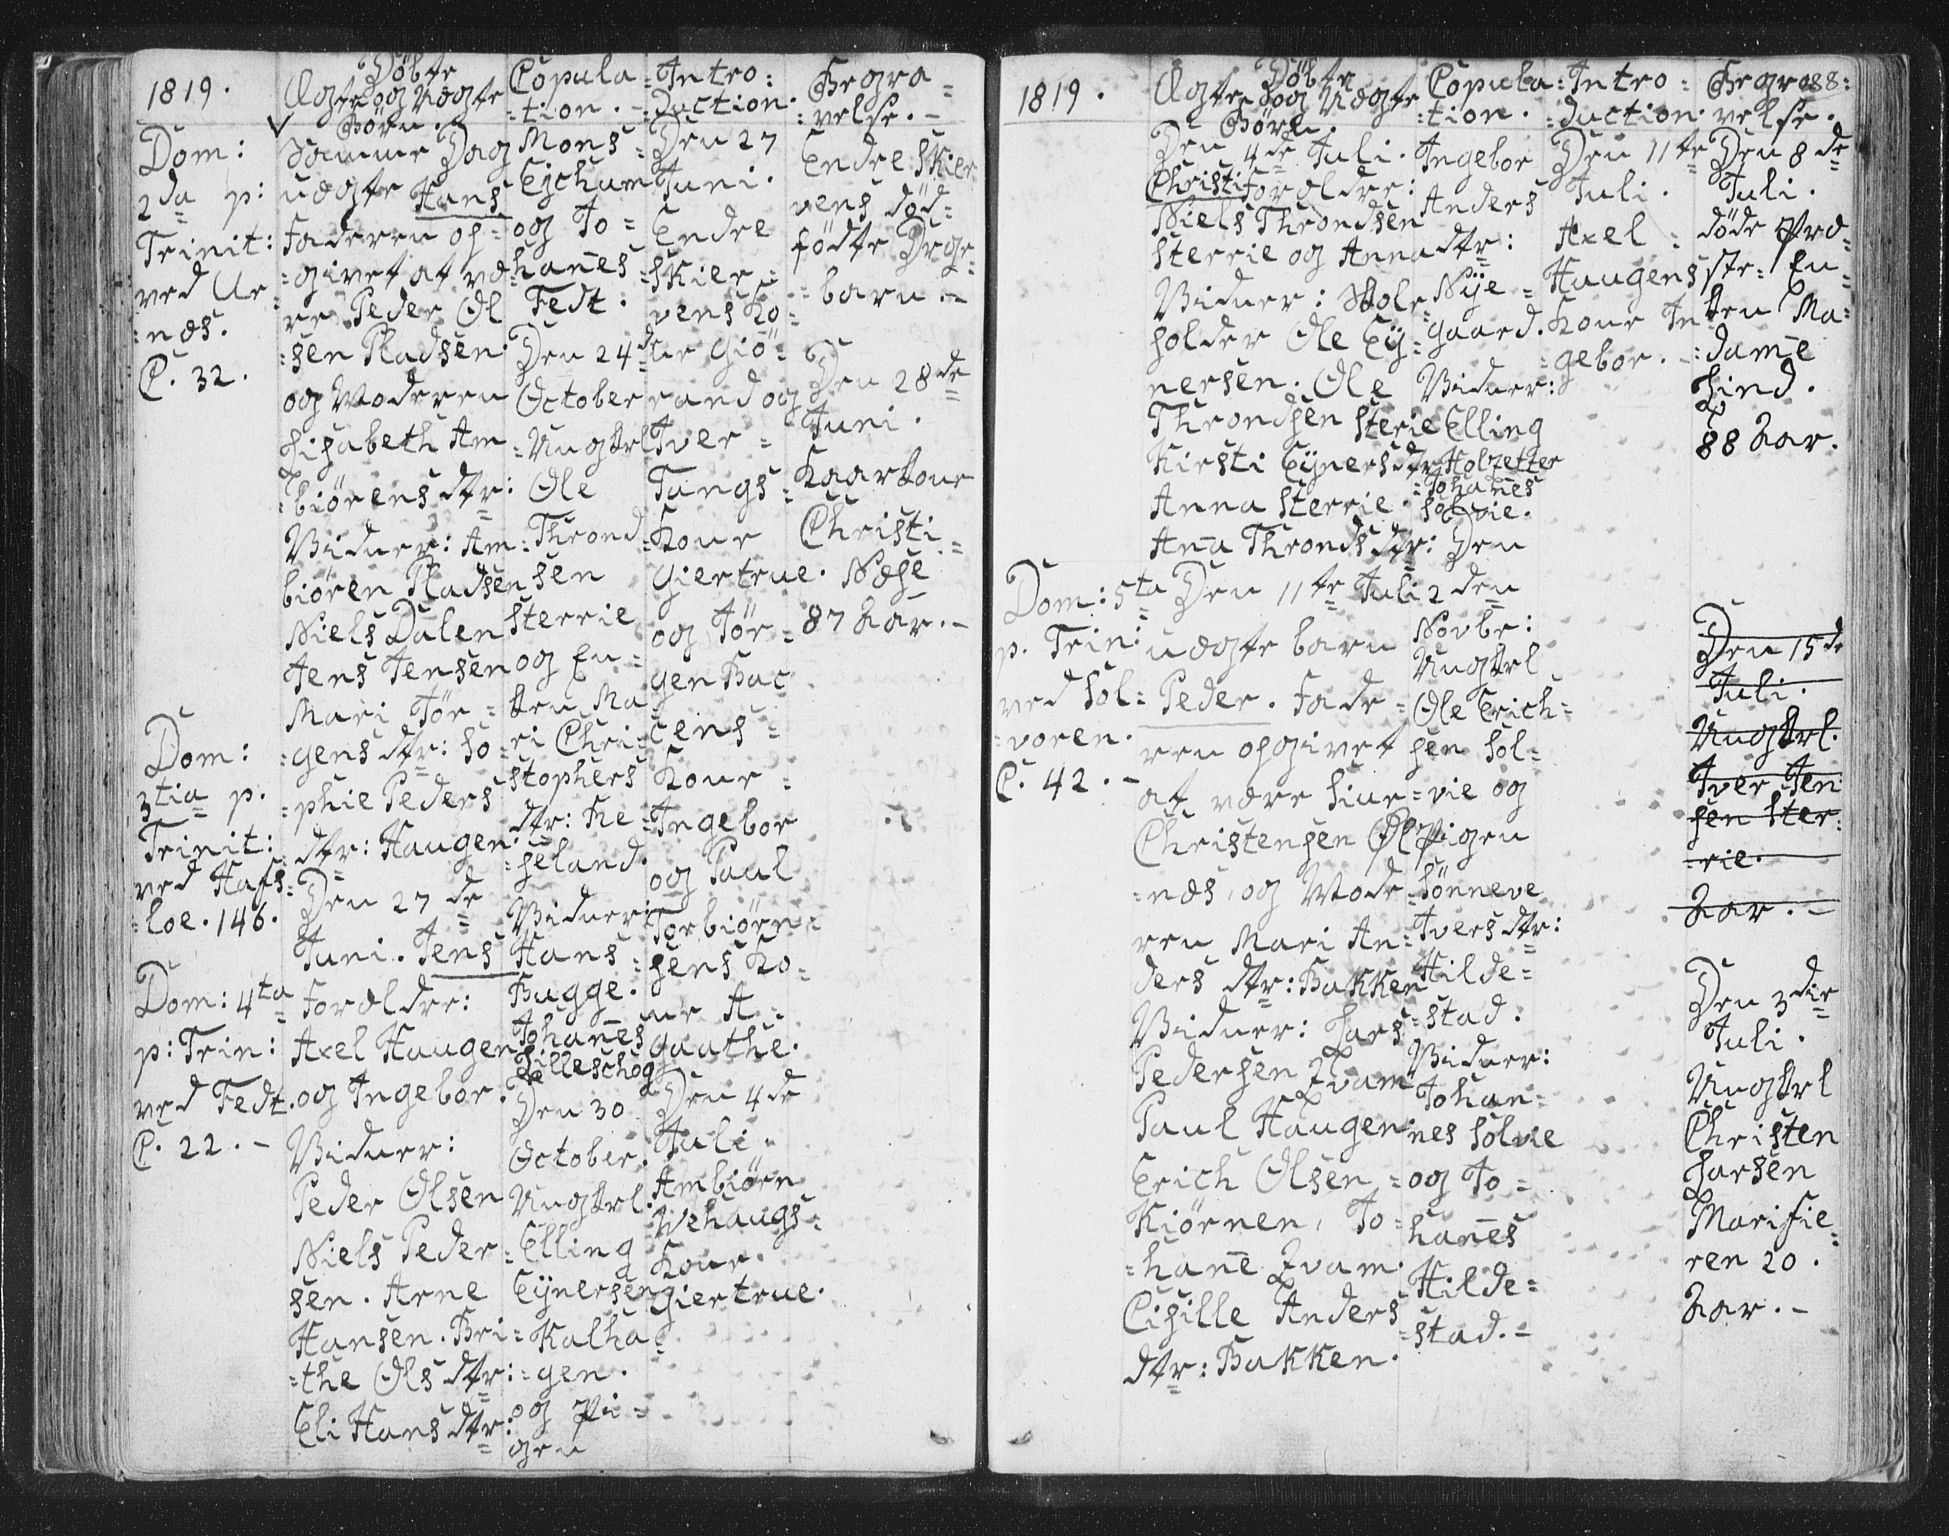 1819.
Dom:
2da p:
Trinit:
ved Ue=
=næs.
C. 32.
Dom:
3tia p.
Trinit:
ved Hafs=
=loe. 146.
Dom: 4ta
p: Trin:
ved Fedt.
C. 22. -
Døbte
Ægte og Uægte
Börn.
Samme Dag
uægte Hans
Faderen op=
=givet at væ=
re Peder Ol
=sen Pladsen.
og Moderen
Lisabeth Am
=biörens dtr:
Vidner: Am=
biören Pladsen
Niels Dalen
Jens Jensen
Mari Jör=
=gens dtr: So=
=phie Peders
dtr: Haugen.
Den 27 de
Juni. Jens
Forældre:
Axel Haugen
og Ingebor.
Vidner:
Peder Olsen
Niels Peder=
sen. Arne
Hansen. Bri=
=the Ols dtr:
Eli Hans dtr:
Copula=
=tion. -
Mons
Ejchum
og Jo=
=hanes
Fedt.
Den 24 de
October
Ungkrl
Ole
Thrond=
sen
Sterrie
og En=
ken Ma
ri Chri=
stophers
dtr: Re=
=seland.
Vidner:
Hans
Bugge.
Johanes
Lilleschog
Den 30
October.
Ungkrl.
Elling
Eynersen
Kalha=
=gen.
og Pi=
gen
Intro:
=duction.
Den 27
Juni.
Endre
Skier=
vens Ko=
ne Giö=
rand og
Iver=
Tangs=
Kone
Giertrue.
og Jör=
gen Bac
cens=
Kone=
Ingebor
og Paul
Torbiörn=
sens Ko=
ne A=
gaathe.
Den 4 de
Juli.
Ambiörn
Vehaugs=
Kone.
Giertrue.
Begra=
=velse. -
Endre Skier
vens död=
födte Drge=
=barn. -
Den 28 de
Juni.
Kaarkone
Christi=
Næse
87 Aar. -
1819.
Dom: 5ta
p. Trin:
ved Sol=
=voren.
C. 42. -
Døbte
Ægte og Uægte
Börn.
Den 4 de Juli.
Christi Forældre:
Niels Throndsen
Sterrie og Anna dtr:
Vidner: Skole
holder Ole Ey=
nersen. Ole
Throndsen Sterie
Kirsti Eyners dtr
Anna Sterrie.
Ana Thronds dtr:
Den 11 te Juli
uægte barn
Peder. Fade=
ren opgivet
at være Siur=
Christensen Øl
=næs, og Mode=
ren Mari An=
ders dtr: Bakken
Vidner: Lars
Pedersen Kvam
Paul Haugen
Erich Olsen
Kiörnen, Jo=
=hane Kvam.
Cisille Anders
dtr: Bakken.
Copula=
=tion.
Ingebor
Anders
Nye=
gaard.
Vidner:
Elling
Molzetter
Johanes
Solvie.
Den
2 den
Novbr:
Ungkrl
Ole Erich=
sen Sol=
=vie og
Pigen
Sönneve
Ivers dtr:
Hilde=
=stad.
Vidner:
Johan=
nes Solvie
=og Jo=
hanes
Hilde=
=stad. -
Intro=
=duction.
Den 11 te
Juli.
Axel=
Haugens
Kone In
=gebor. -
Begra 88:
velse.
Den 8 de
Juli.
döde Præ=
ste-En=
ken Ma=
=dame
Lind.
88 Aar.
Den 15 de
Juli.
Ungkrl.
Iver Jen
sen Ster=
=rie.
Aar. -
Den 3 die
Juli.
Ungkrl
Christen
Larsen
Marifie=
ren 20.
Aar. -